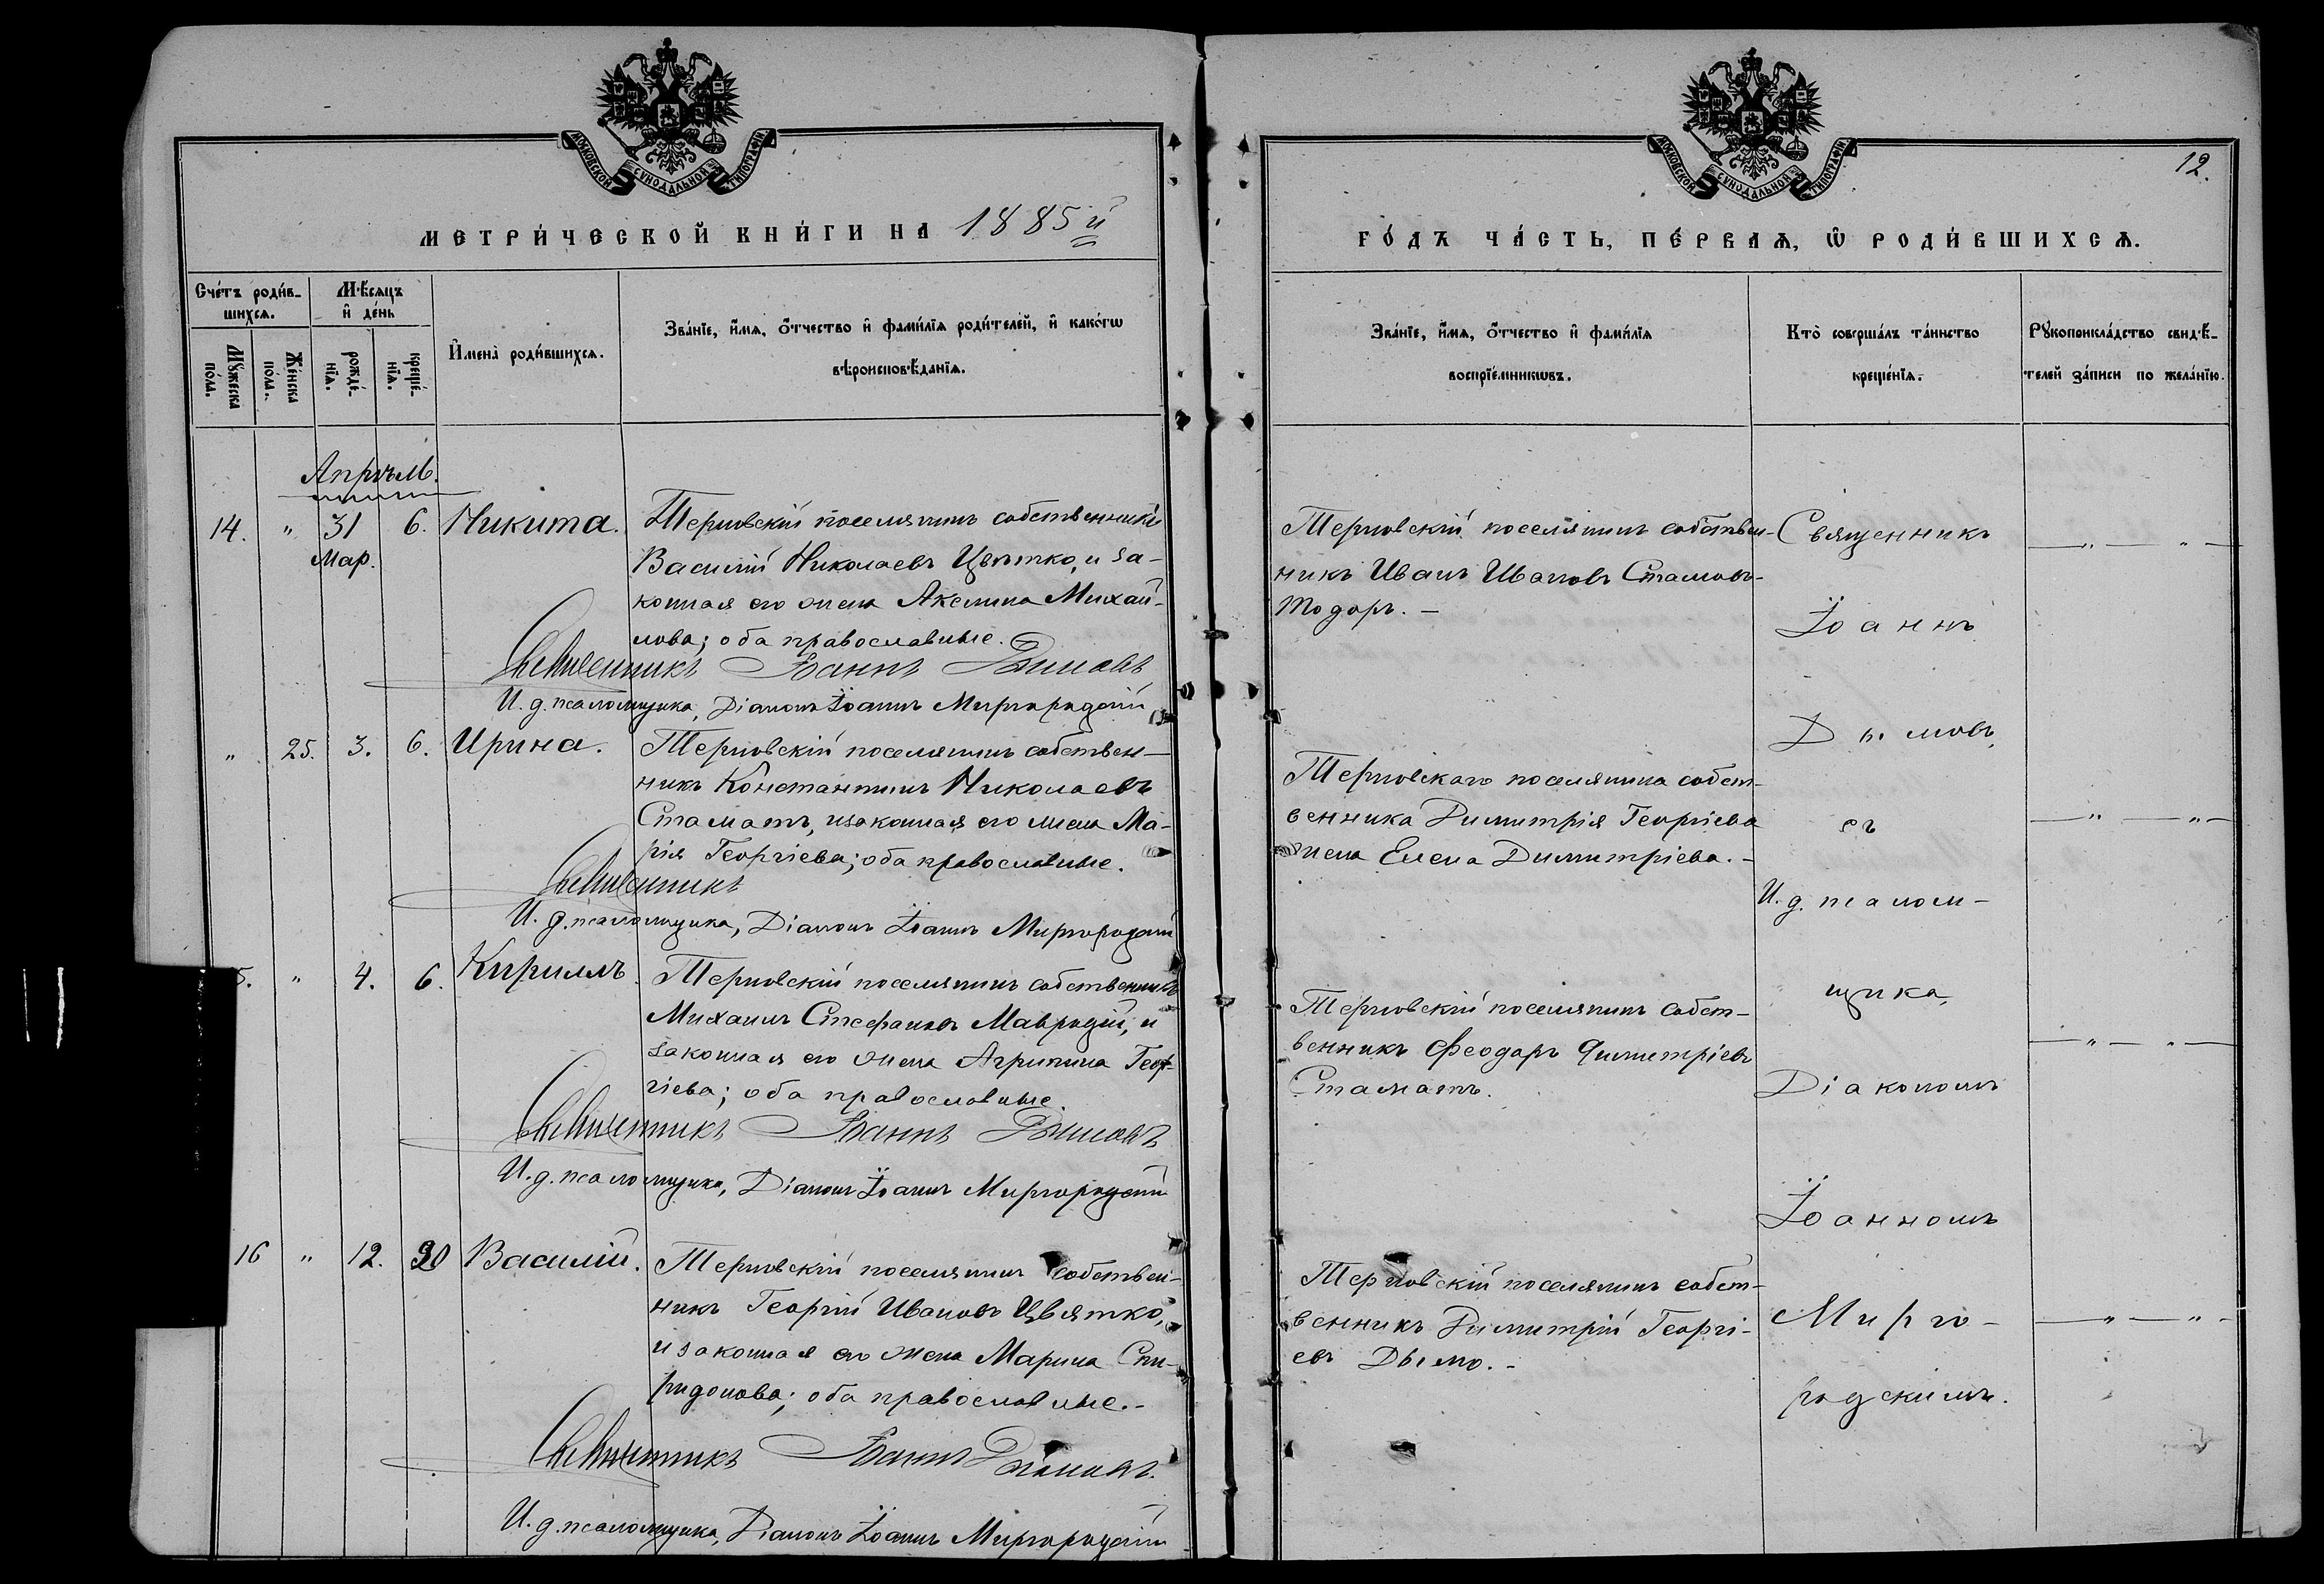 МОСКОВСКОЙ СѴНОДАЛЬНОЙ ТИПОГРАФІИ
МЕТРИ́ЧЕСКОЙ КНИ́ГИ НА 1885й
Сче́тъ роди́в-
шихсѧ.
Мѣ́сѧцъ
и҆ де́нь
Мꙋ́жеска
по́ла.
Же́нска
по́ла.
рожде́-
нїѧ.
креще́-
нїѧ.
И҆мена̀ роди́вшихсѧ.
Зва́нїе, и҆́мѧ, ѻ҆́тчество и҆ фами́лїѧ роди́телей, и҆ како́гѡ
вѣроисповѣ́данїѧ.
Апрѣль.
14. " 31 6. Никита. Терновскій поселянинъ собственникъ
Мар. Василій Николаевъ Цвѣтко, и за-
конная его жена Акелина Михай-
лова; оба православные.
Священникъ Іоаннъ Дымовъ
И. д. псаломщика, Діаконъ Іоаннъ Миргородскій
" 25. 3. 6. Ирина. Терновскій поселянинъ собствен-
никъ Константинъ Николаевъ
Стаматъ, и законная его жена Ма-
рія Георгіева; оба православные.
Священникъ
И. д. псаломщика, Діаконъ Іоаннъ Миргородскій
5. " 4. 6. Кириллъ. Терновскій поселянинъ собственникъ
Михаилъ Стефановъ Мавродій, и
законная его жена Агрипина Геор-
гіева; оба православные.
Священникъ Іоаннъ Дымовъ
И. д. псаломщика, Діаконъ Іоаннъ Миргородскій
16 " 12. 20 Василій. Терновскій поселянинъ собствен-
никъ Георгій Ивановъ Цвятко,
и законная его жена Марина Спи-
ридонова; оба православные.-
Священникъ Іоаннъ Дымовъ.
И. д. псаломщика, Діаконъ Іоаннъ Миргородскій
МОСКОВСКОЙ СѴНОДАЛЬНОЙ ТИПОГРАФІИ
12.
ГО́ДЪ ЧА́СТЬ, ПЕ́РВАѦ, Ѡ҆ РОДИ́ВШИХСѦ.
Зва́нїе, и҆́мѧ, ѻ҆́тчество и҆ фами́лїѧ
воспрїе́мникѡвъ.
Кто̀ соверша́лъ та́инство
креще́нїѧ.
Рꙋкоприкла́дство свидѣ́-
телей за́писи по жела́нїю.
Терновскій поселянинъ собствен-
никъ Иванъ Ивановъ Стамовъ-
Тодоръ. -
Терновскаго поселянина собст-
венника Димитрія Георгіева
жена Елена Димитріева. -
Терновскій поселянинъ собст-
венникъ Феодоръ Димитріевъ
Стаматъ.
Терновскій поселянинъ собст-
венникъ Димитрій Георгі-
евъ Дымо. -
Священникъ
Іоаннъ
Дымовъ
съ
И. д. псалом-
щика,
Діакономъ
Іоанномъ
Мирго-
родскимъ.
— " — " —
— " — " —
— " — " —
— " — " -